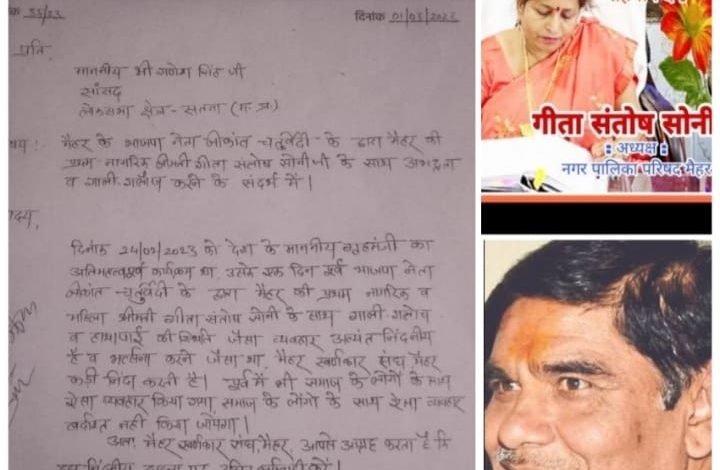 क 55/23
दिनांक 01/03/2023
प्रति,
माननीय श्री गणेश सिंह जी
सांसद
लोकसभा क्षेत्र - सतना (म.प्र.)
षय: मैहर के भाजपा नेता श्रीकांत चतुर्वेदी के द्वारा मैहर की
प्रथम नागरिक श्रीमती गीता संतोष सोनी जी के साथ अभद्रता
व गाली गलौज करने के संदर्भ में।
दय,
दिनांक 24/02/2023 को देश के माननीय गृहमंत्री का
अतिमहत्वपूर्ण कार्यक्रम था, उसके एक दिन पूर्व भाजपा नेता
श्रीकांत चतुर्वेदी के द्वारा मैहर की प्रथम नागरिक व
महिला श्रीमती गीता संतोष सोनी के साथ गाली गलौच
व हाथापाई की स्थिति जैसा व्यवहार अत्यंत निंदनीय
है व भर्त्सना करने जैसा था, मैहर स्वर्णकार संघ मैहर
कड़ी निंदा करती है। पूर्व में भी समाज के लोगों के साथ
ऐसा व्यवहार किया गया, समाज के लोगों के साथ ऐसा व्यवहार
बर्दाश्त नहीं किया जायेगा।
अतः मैहर स्वर्णकार संघ, मैहर, आपसे आग्रह करता है कि
गीता संतोष सोनी
: अध्यक्ष :
नगर पालिका परिषद मैहर